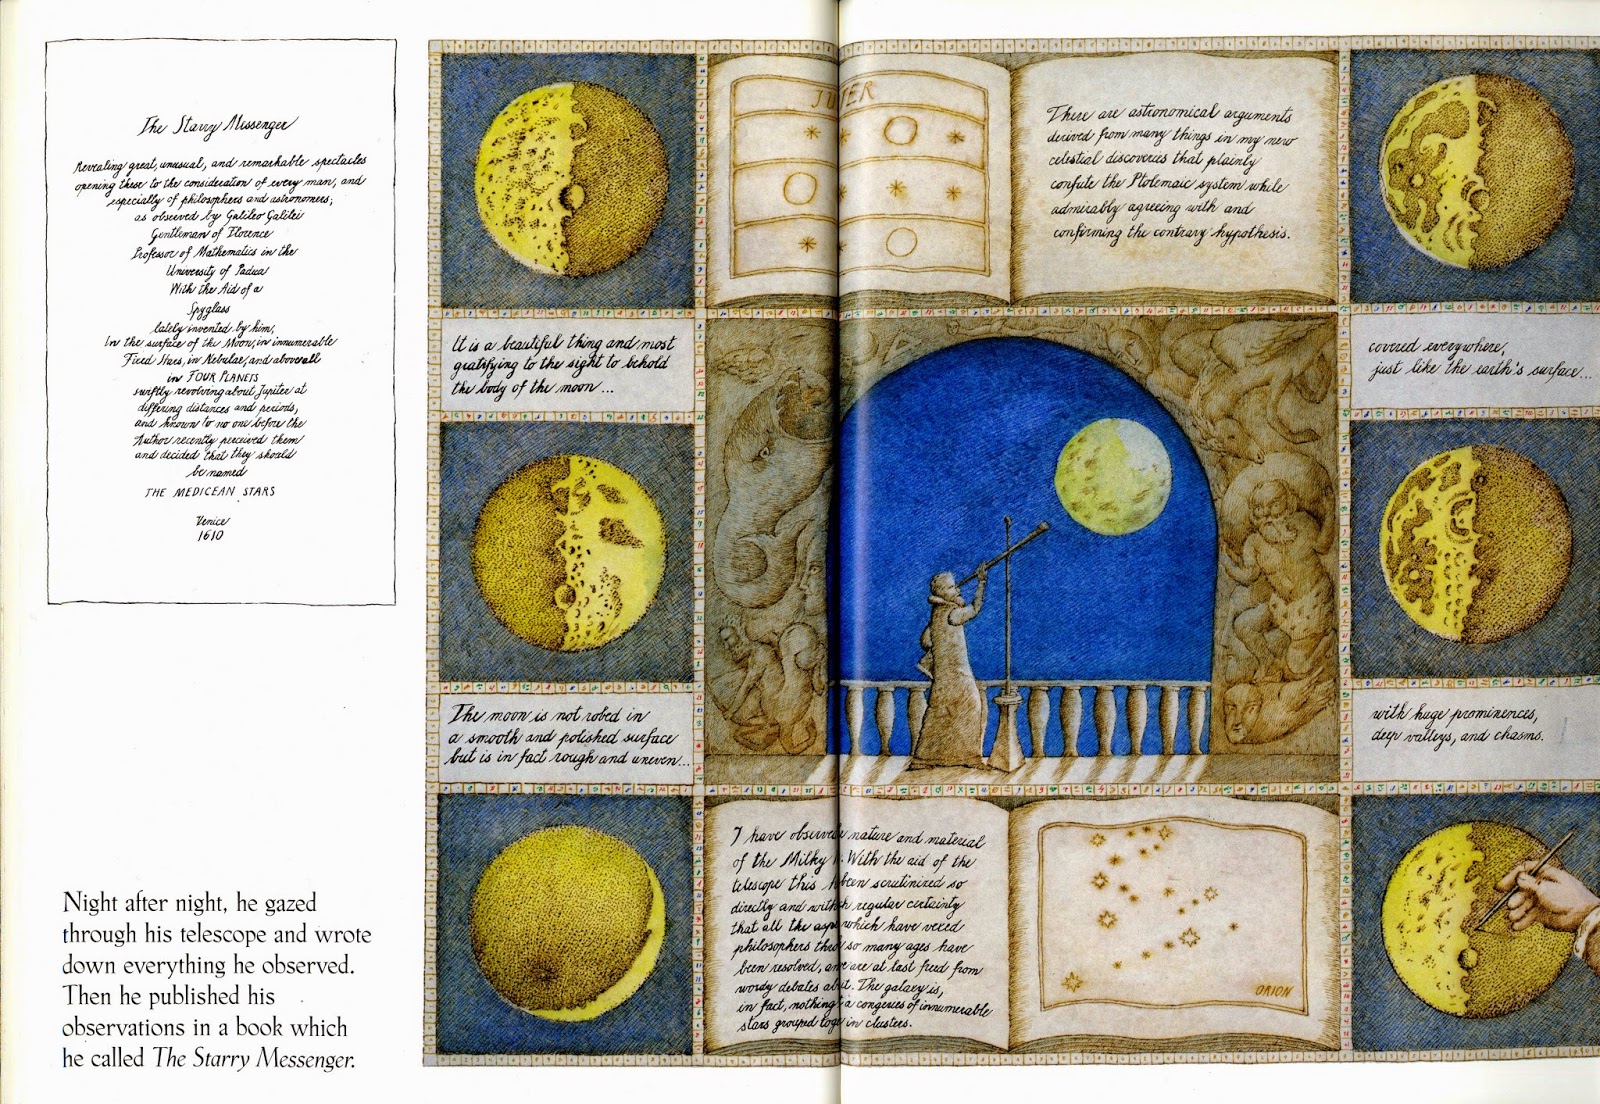 The Starry Messenger
Revealing great, unusual, and remarkable spectacles
opening these to the consideration of every man, and
especially of philosophers and astronomers;
as observed by Galileo Galilei
Gentleman of Florence
Professor of Mathematics in the
University of Padua
With the Aid of a
Spyglass
lately invented by him,
In the surface of the Moon, in innumerable
Fixed Stars, in Nebulae, and above all
in FOUR PLANETS
swiftly revolving about Jupiter at
differing distances and periods,
and known to no one before the
Author recently perceived them
and decided that they should
be named
THE MEDICEAN STARS
Venice
1610
Night after night, he gazed
through his telescope and wrote
down everything he observed.
Then he published his
observations in a book which
he called The Starry Messenger.
There are astronomical arguments
derived from many things in my new
celestial discoveries that plainly
confute the Ptolemaic system while
admirably agreeing with and
confirming the contrary hypothesis.
It is a beautiful thing and most
gratifying to the sight to behold
the body of the moon...
The moon is not robed in
a smooth and polished surface
but is in fact rough and uneven...
covered everywhere,
just like the earth's surface...
with huge prominences,
deep valleys, and chasms.
I have observed nature and material
of the Milky With the aid of the
telescope this been scrutinized so
directly and with regular certainty
that all the which have vexed
philosophers so many ages have
been resolved, are at last freed from
wordy debates The galaxy is,
in fact, nothing a congeries of innumerable
stars grouped in clusters.
ORION